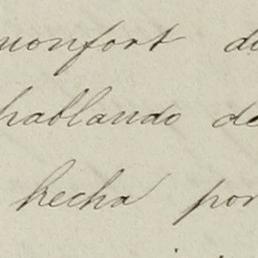 monfort di
hablando de
hecha por